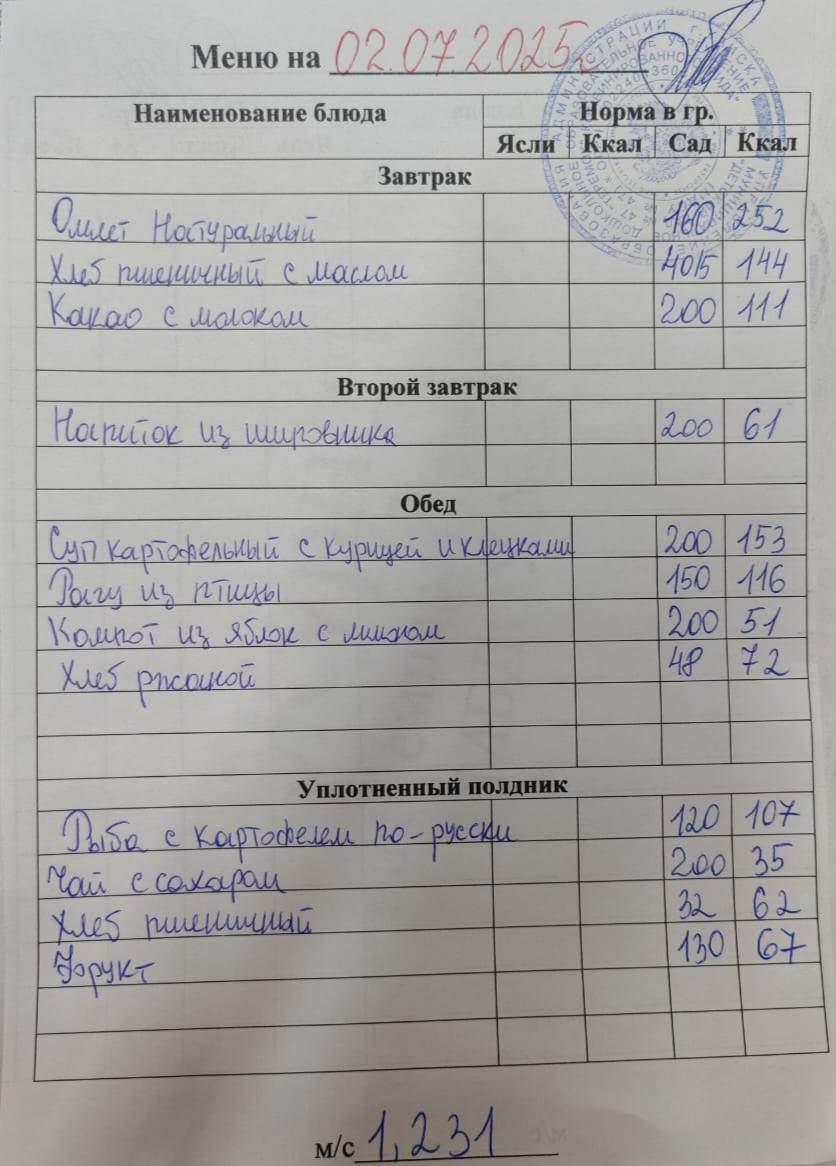 Меню на 02.07.2025г
Наименование блюда Норма в гр.
Ясли Ккал Сад Ккал
Завтрак
Омлет Натуральный 160 252
Хлеб пшеничный с маслом 40/5 144
Какао с молоком 200 111
Второй завтрак
Напиток из шиповника 200 61
Обед
Суп картофельный с курицей и клецками 200 153
Рагу из птицы 150 116
Компот из яблок с лимоном 200 51
Хлеб ржаной 48 72
Уплотненный полдник
Рыба с картофелем по-русски 120 107
Чай с сахаром 200 35
Хлеб пшеничный 32 62
Фрукт 130 67
м/с 1,231